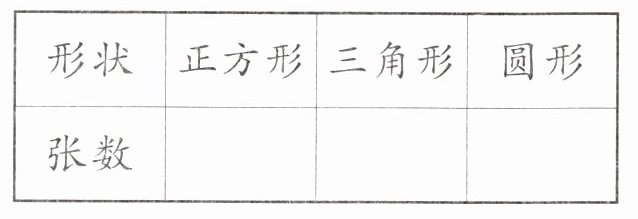 形状 正方形 三角形 圆形
张数